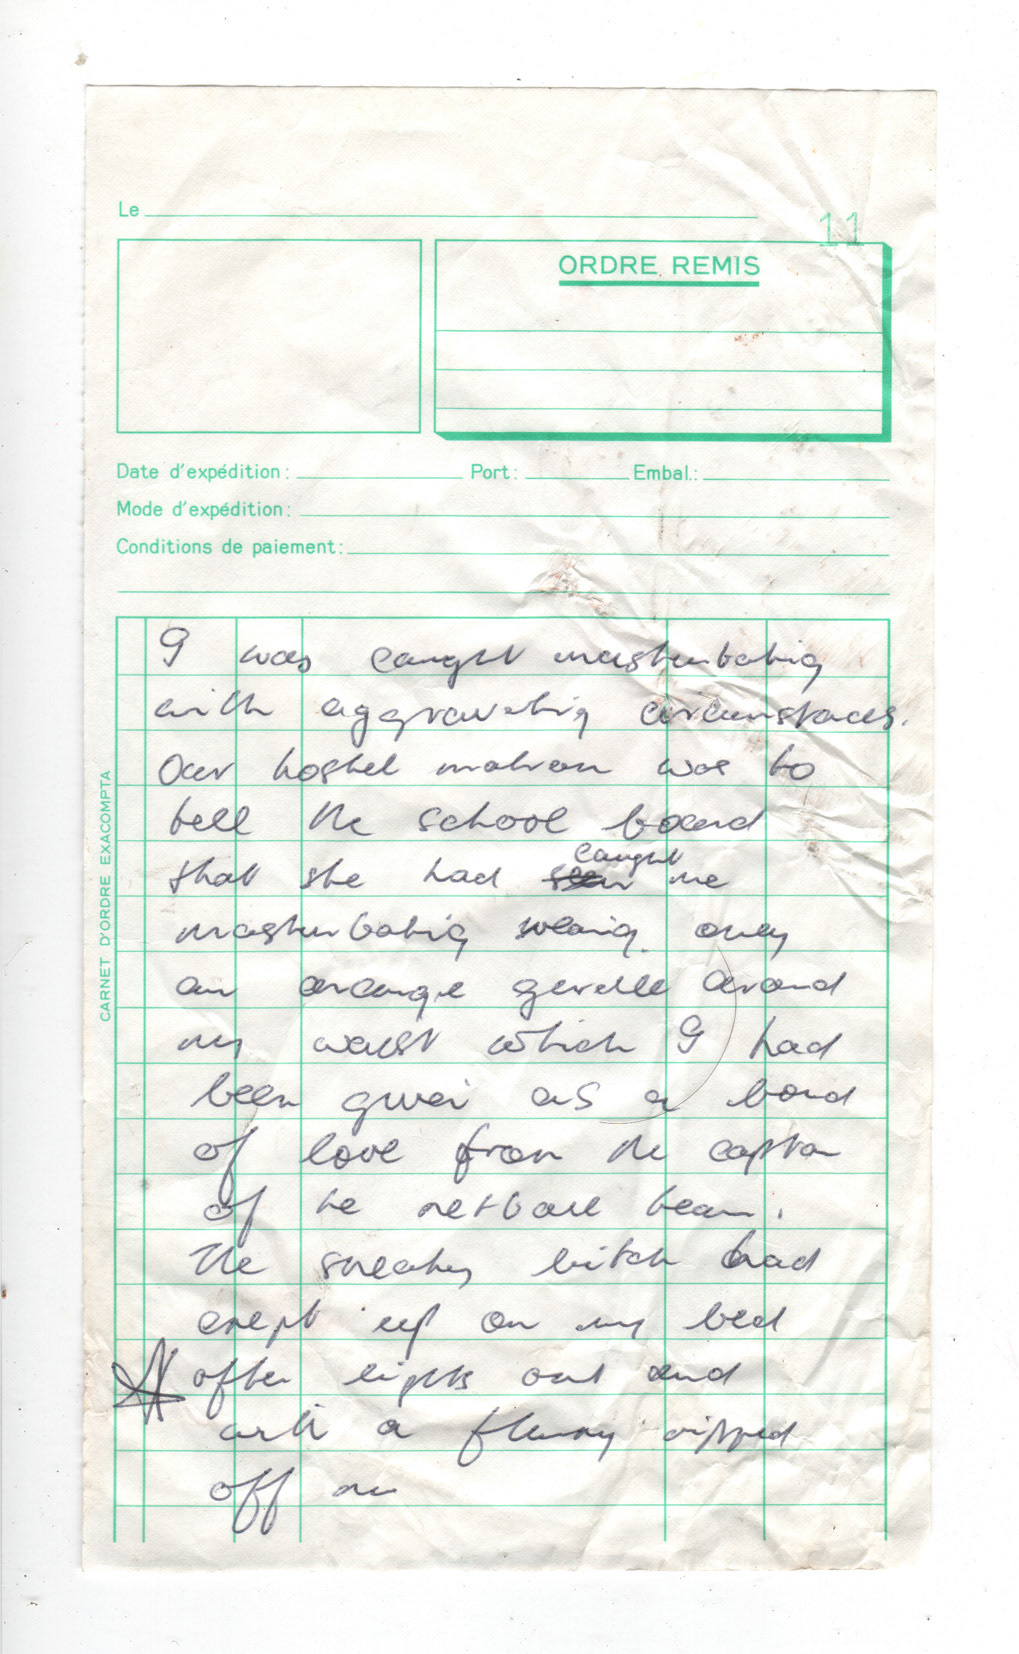 Le
11
ORDRE REMIS
Date d'expédition : Port : Embal. :
Mode d'expédition :
Conditions de paiement :
CARNET D'ORDRE EXACOMPTA
I was caught masturbating
with aggravating circumstances.
Our hostel matron was to
tell the school board
that she had caught me
masturbating wearing only
an orange girdle around
my waist which I had
been given as a bond
of love from the captain
of the netball team.
The sneaky bitch had
crept up on my bed
after lights out and
with a ripped
off